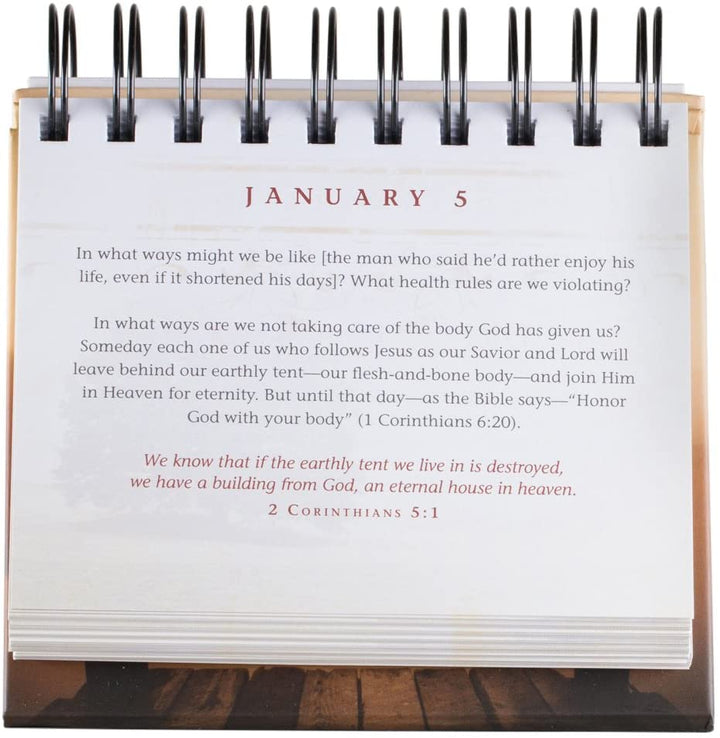 JANUARY 5
In what ways might we be like [the man who said he’d rather enjoy his
life, even if it shortened his days]? What health rules are we violating?
In what ways are we not taking care of the body God has given us?
Someday each one of us who follows Jesus as our Savior and Lord will
leave behind our earthly tent—our flesh-and-bone body—and join Him
in Heaven for eternity. But until that day—as the Bible says—“Honor
God with your body” (1 Corinthians 6:20).
We know that if the earthly tent we live in is destroyed,
we have a building from God, an eternal house in heaven.
2 CORINTHIANS 5:1